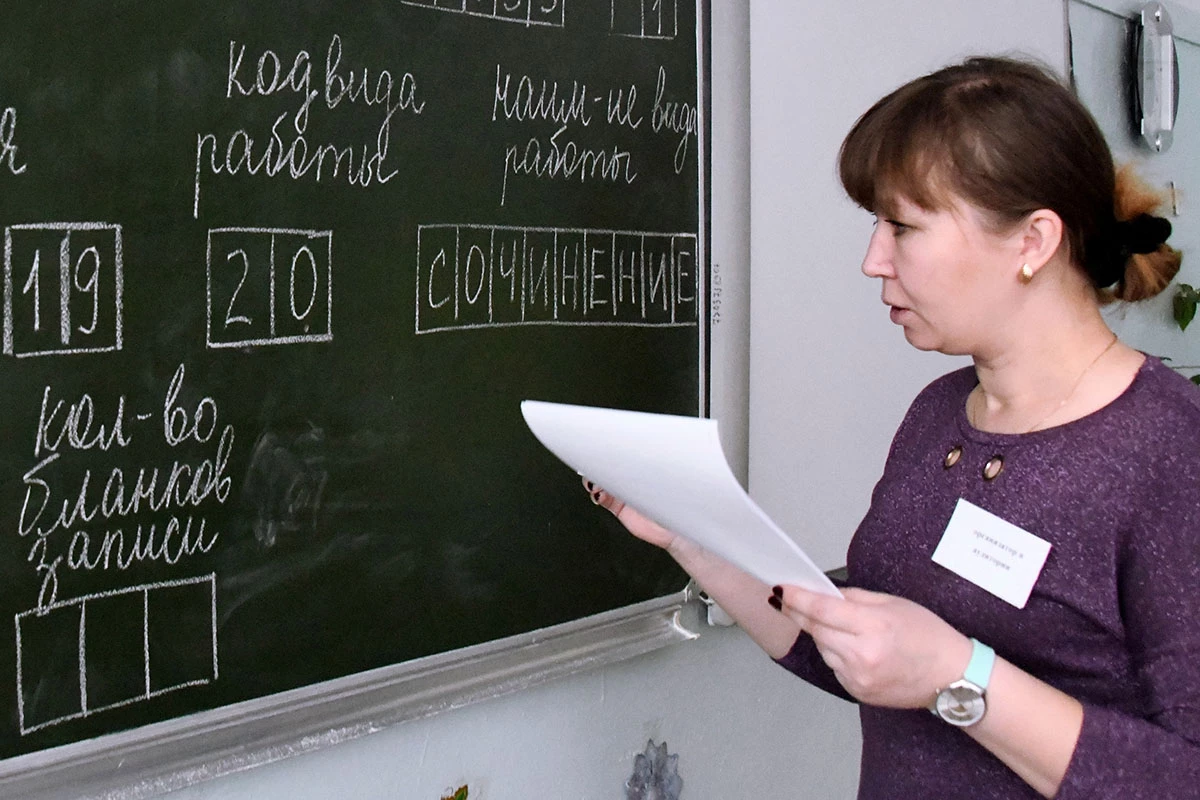 1
я
код вида
работы
наим-ие вида
работы
19
20
СОЧИНЕНИЕ
кол-во
бланков
записи
организатор в
аудитории